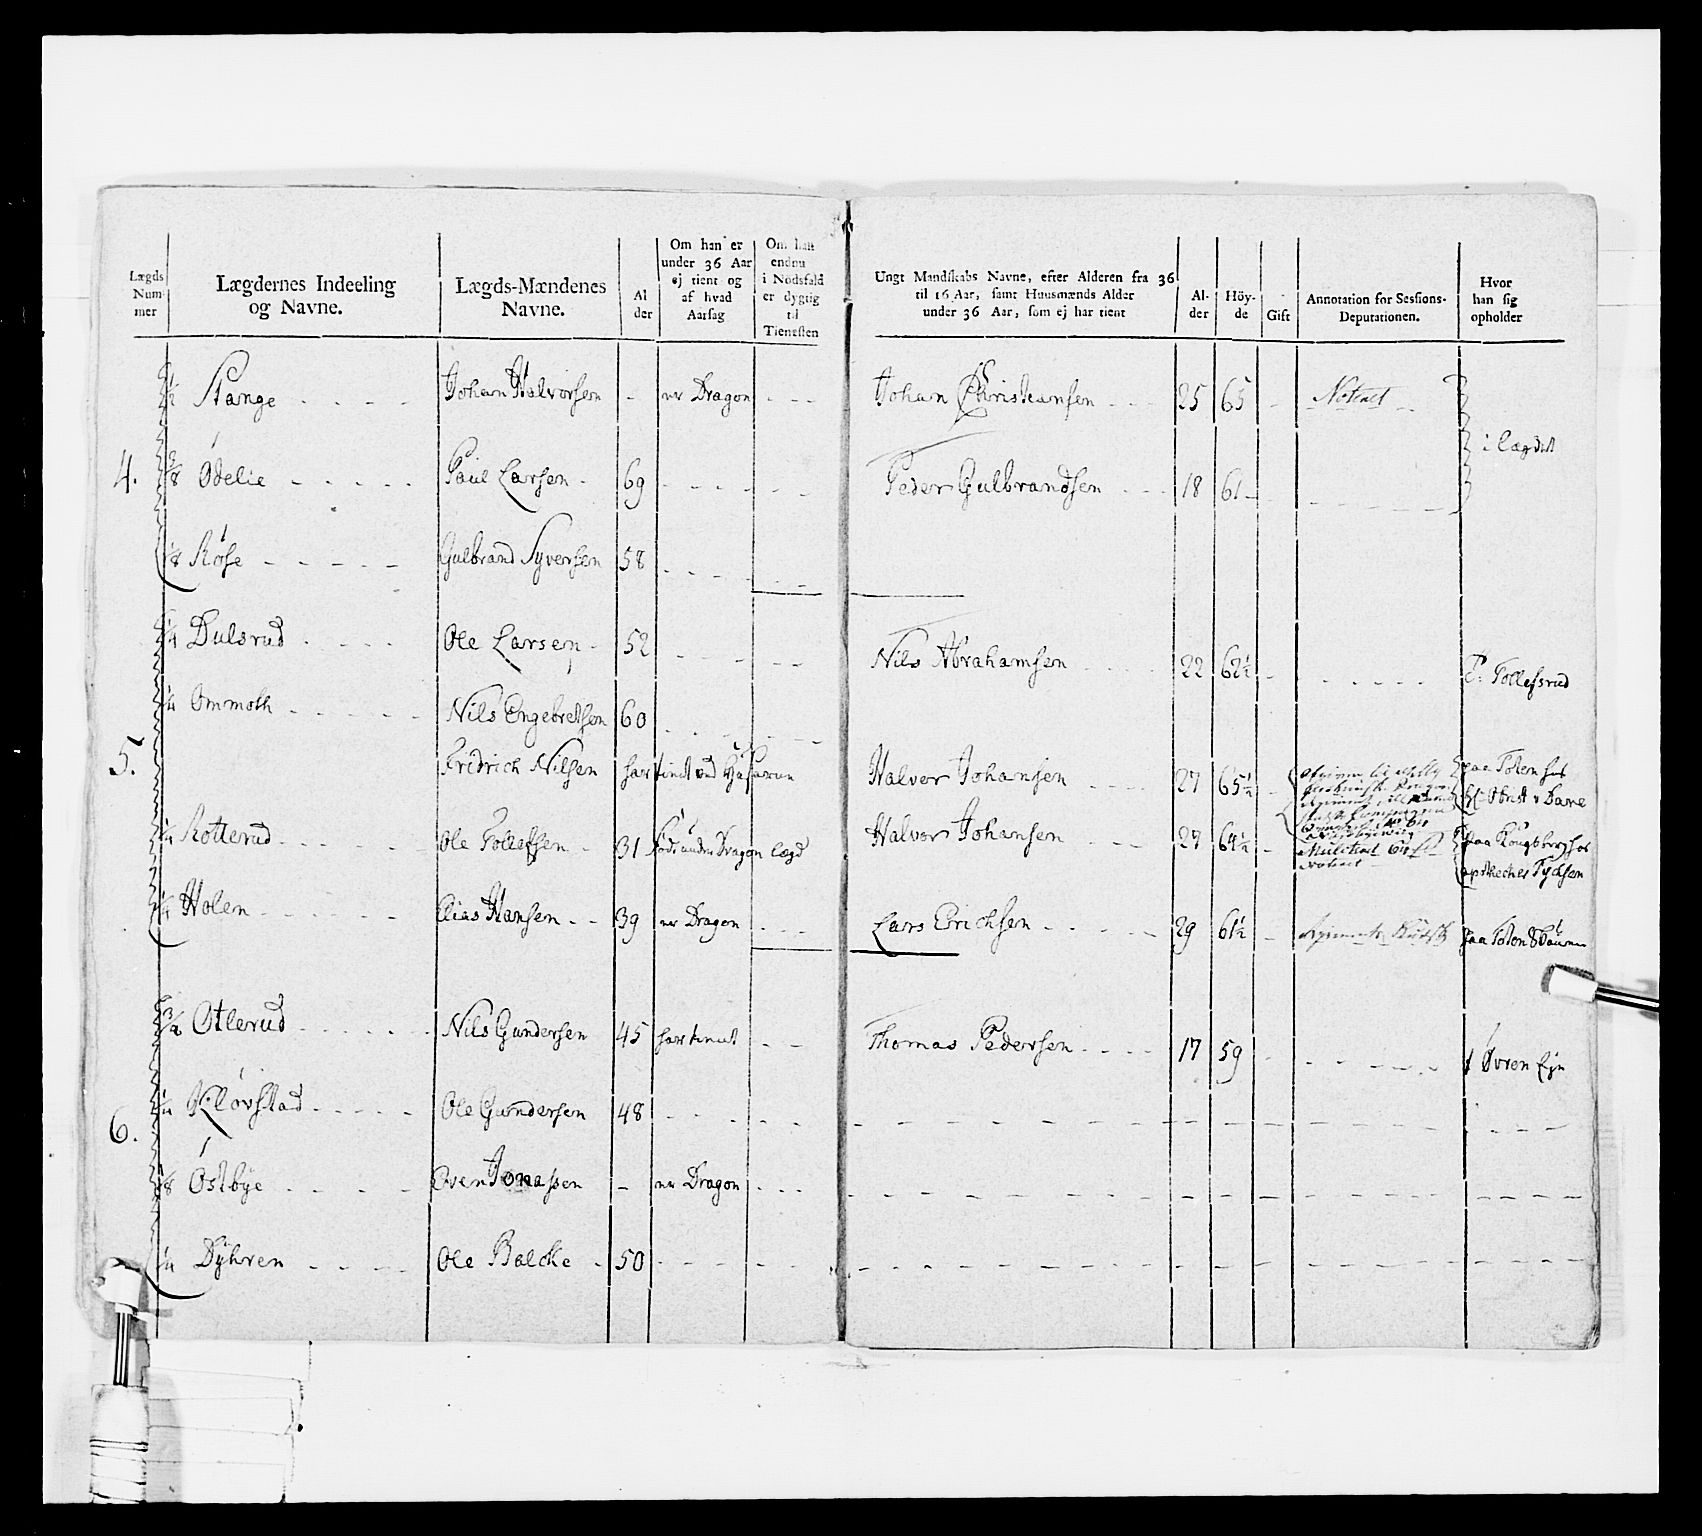 Lægds Num- mer
Lægdernes Indeeling og Navne.
Lægds-Mændenes Navne.
Al der
Om han er under 36 Aar ej tient og af hvad Aarsag
Om han endnu i Nödsfald er dygtig til Tienesten
Ungt Mandskabs Navne, efter Alderen fra 36 til 16 Aar, samt Huusmænds Alder under 36 Aar, som ej har tient
Al- der
Höy- de
Gift
Annotation for Sessions- Deputationen.
Hvor han sig opholder
1/2 Stange - - - - Johan Halvorsen - er Dragon - - - Johan Christiansen - - 25 65 - Noteret - -
i Lægdet
4. 3/8 Ødelie - - - - - Paul Larsen - 69 - - - - - - Peder Gulbrandsen - - - 18 61 - - - - - -
1/8 Røse - - - - - Gulbrand Syversen 58 - - - - - -
1/4 Dulsrud - - - - Ole Larsen - 52 - - - - - Nils Abrahamsen - - - - 22 62 1/2 - - - - - - - E: Tollefsrud
1/4 Ommoth - - - - - Nils Engebretsen 60 - - - - - -
5. Fridrich Nilsen har tient ved Husarene Halvor Johansen - - - - 27 65 1/2 - paa Toten hos
Obrst v Dave
1/4 Rotterud - - - - - Ole Tollefsen - 31 Føds under Dragon Lægd Halvor Johansen - - - 27 64 1/2 - noteret paa Kongsberg hos
apothecher Tychsen
1/4 Holen - - - - - - Elias Hansen - - 39 er Dragon - - - Lars Erichsen - - - - - 29 61 1/2 - paa Toten
6. Otlerud - - - - - - Nils Gundersen 45 har tient - - Thomas Pedersen - - - - 17 59 - - - - - - - Øvren Ejn
1/4 Kløvstad - - - - - Ole Gundersen 48 - - - - - -
1/8 Østbye - - - - Even Jonassen - er Dragon - - -
1/4 Dyhren - - - - Ole Balche - 50 - - - - - -